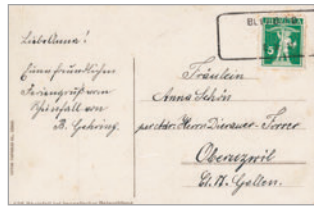 Liebe Anna!
Einen freundlichen
Feriengruß vom
Rheinfall von
B. Gehring.
5
Fräulein
Anna Schön
per Adr. Herrn Dierauer-Forrer
Oberuzwil
Ct. St. Gallen.